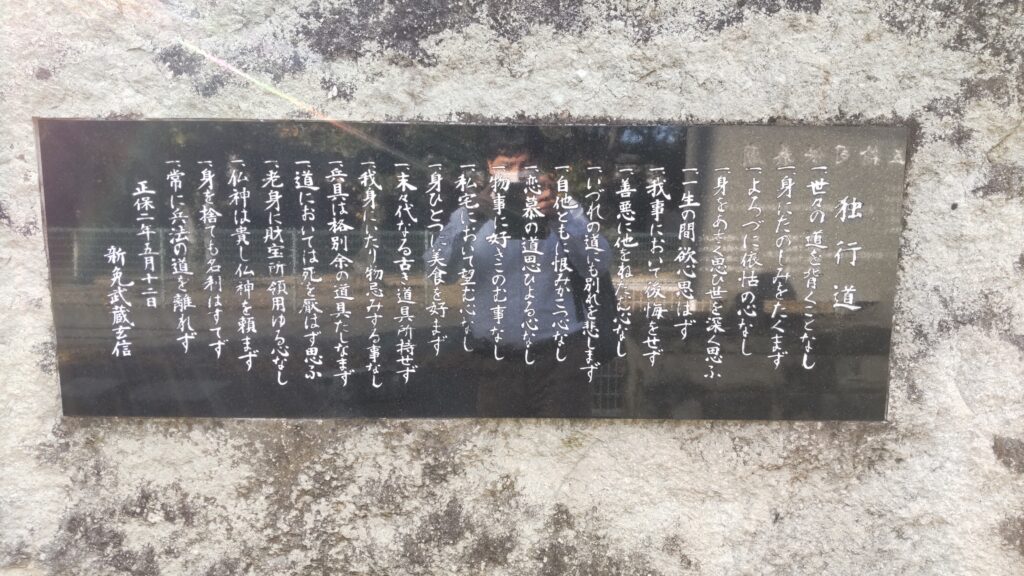 独行道
一世々の道を背くことなし
一身にたのしみをたくまず
一よろづに依怙の心なし
一身をあさく思ひ世を深く思ふ
一一生の間欲心思はず
一我事において後悔をせず
一善悪に他をねたむ心なし
一いつれの道にも別れを悲しまず
一自他ともに恨みかこつ心なし
一恋慕の道思ひよる心なし
一物事に好きこのむ事なし
一私宅において望む心なし
一身ひとつに美食を好まず
一末々代なる古き道具所持せず
一我身にいたり物忌みする事なし
一兵具は格別余の道具たしなまず
一道においては死を厭はず思ふ
一老身に財宝所領用ゆる心なし
一仏神は貴し仏神を頼まず
一身を捨ても名利はすてず
一常に兵法の道を離れず
正保二年五月十二日
新免武蔵玄信